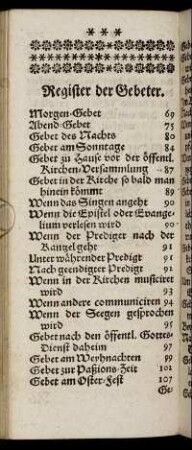 Register der Gebeter.
Morgen-Gebet 69
Abend-Gebet 75
Gebet des Nachts 80
Gebet am Sonntage 84
Gebet zu Hause vor der öffentl.
Kirchen-Versammlung 87
Gebet in der Kirche so bald man
hinein kömmt 89
Wenn das Singen angeht 90
Wenn die Epistel oder Evange-
lium verlesen wird 90
Wenn der Prediger nach der
Kanzel geht 91
Unter währender Predigt 91
Nach geendigter Predigt 91
Wenn in der Kirchen musiciret
wird 93
Wenn andere communiciren 94
Wenn der Seegen gesprochen
wird 95
Gebet nach den öffentl. Gottes-
Dienst daheim 97
Gebet am Weyhnachten 99
Gebet zur Paßions-Zeit 101
Gebet am Oster-Fest 107
Ge-